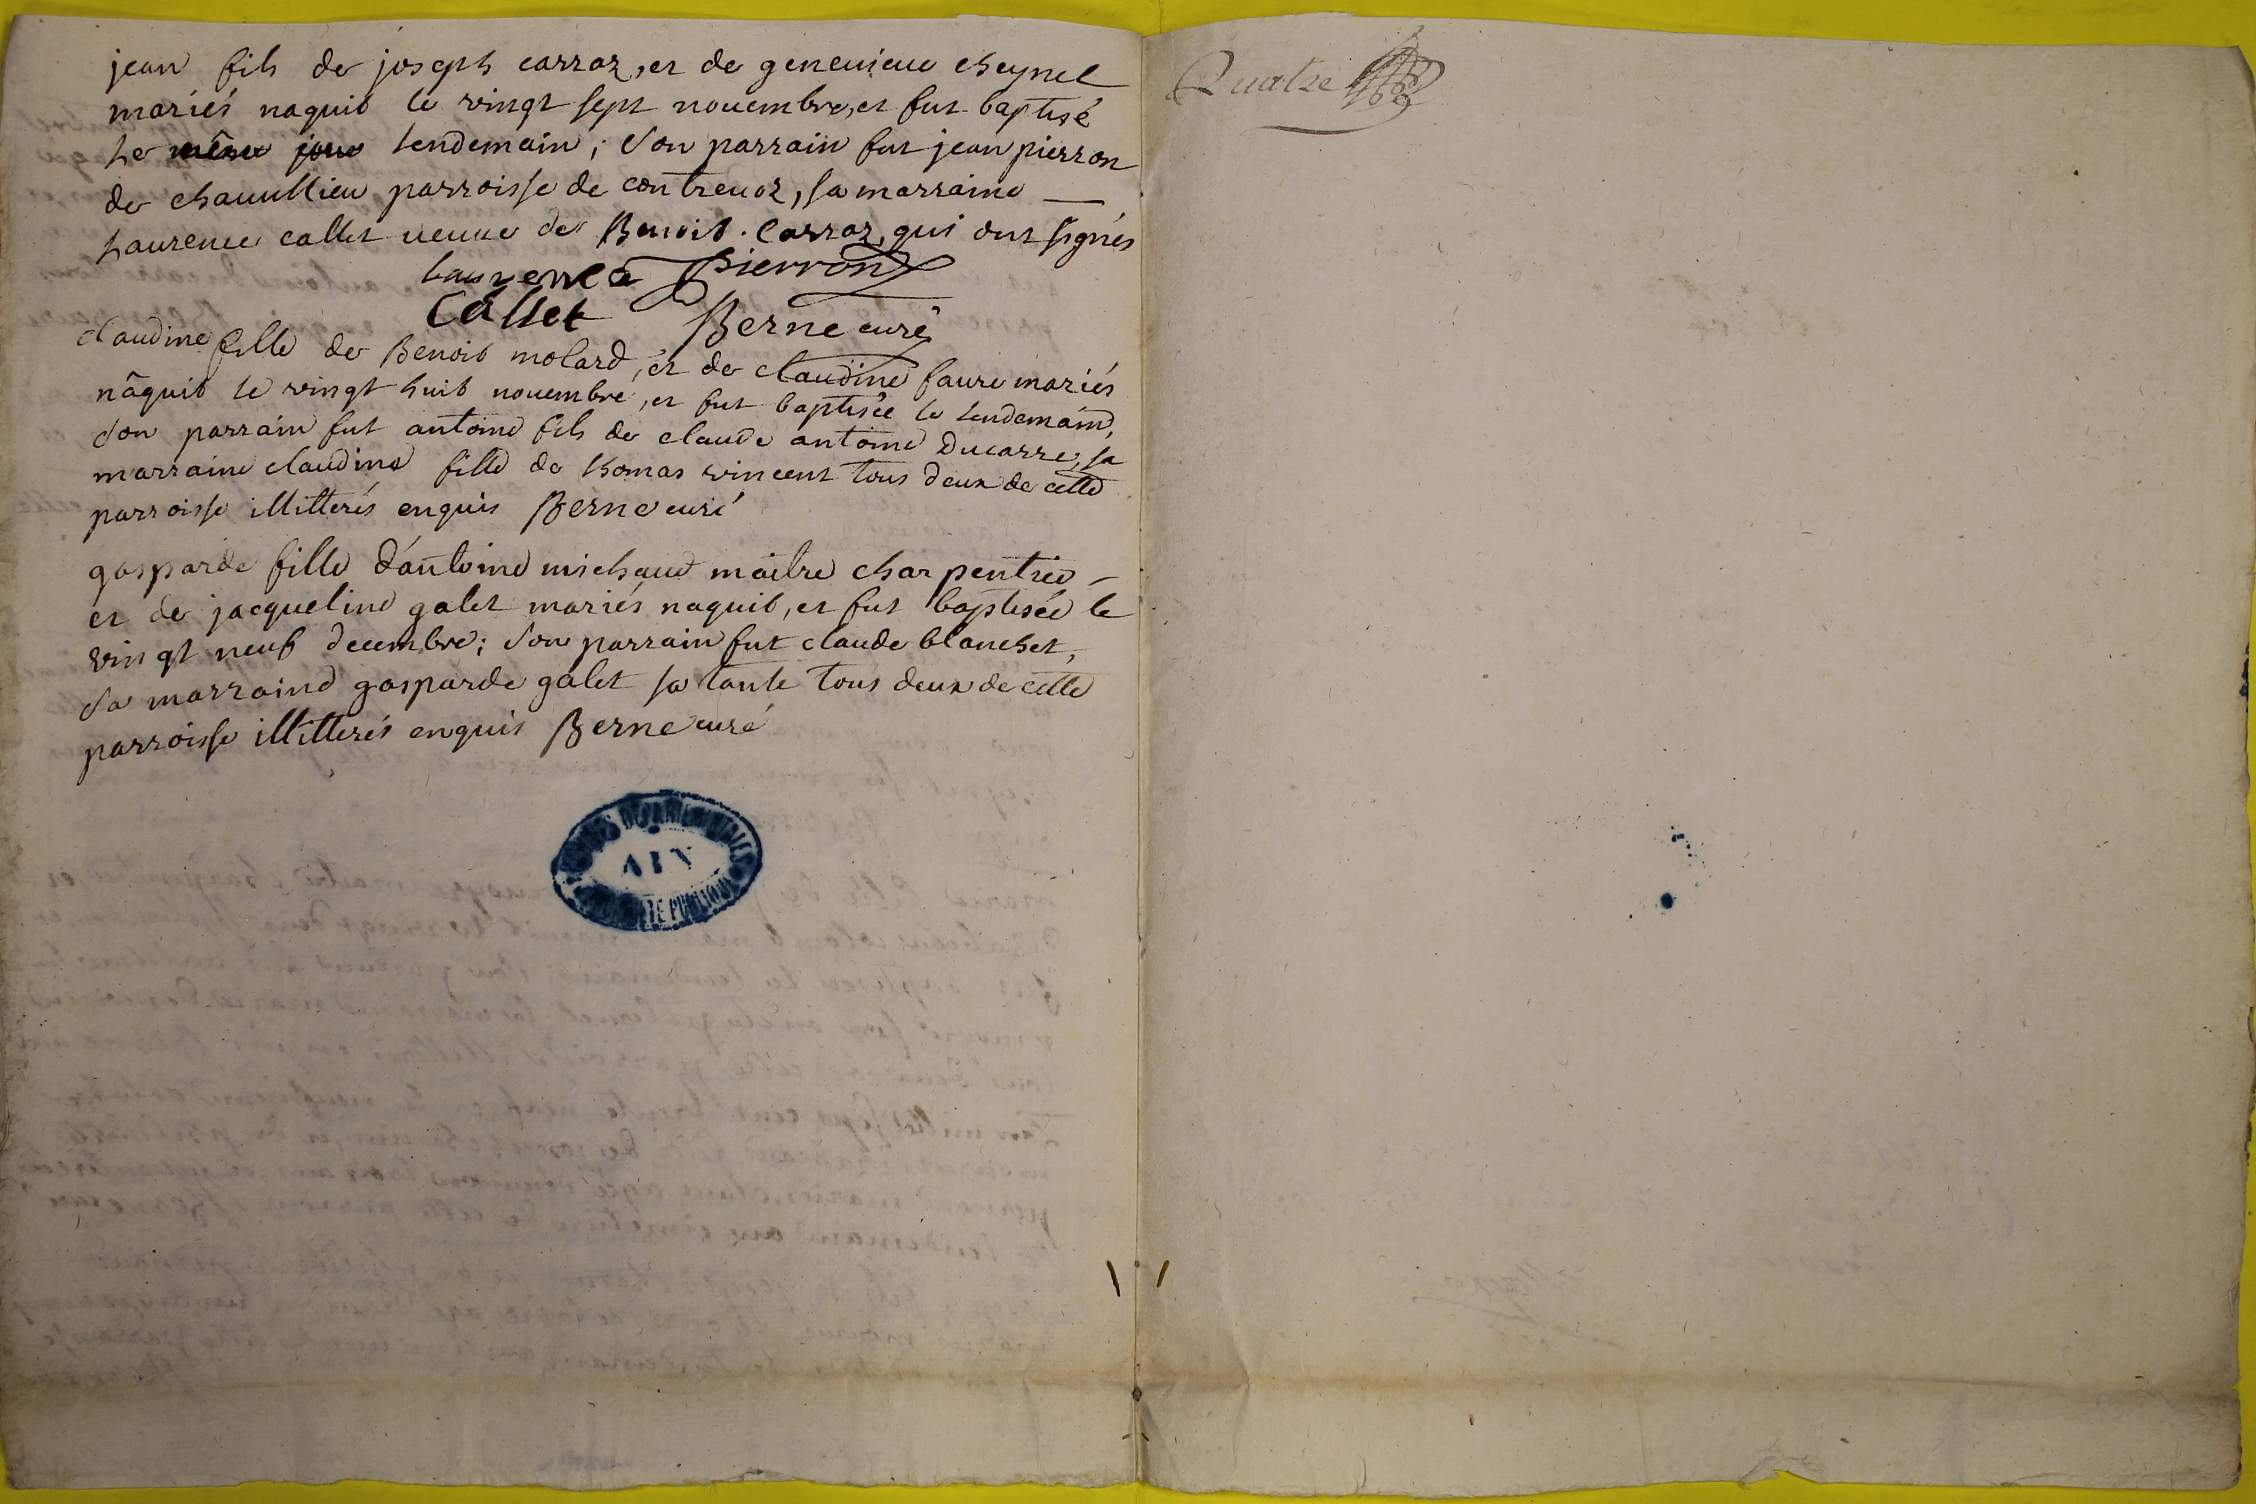 jean fils de joseph carraz, et de geneuieue cheynel
mariés naquit le vingt sept nouembre, et fut baptisé
le même jour lendemain; son parrain fut jean pierron
de chauullieu parroisse de contreuoz, sa marraine
Laurence callet ueuue de Benoit. Carraz, qui ont signés
laurence pierron
Callet Berne curé
claudine fille de Benoit molard, et de claudine faure mariés
nâquit le vingt huit nouembre, et fut baptisée le lendemain,
son parrain fut antoine fils de claude antoine Ducarre, sa
marraine claudine fille de thomas vincent tous deux de cette
parroisse illitterés enquis Berne curé
gasparde fille d'antoine michaud maitre charpentier
et de jacqueline galet mariés naquit, et fut baptisée le
vingt neuf decembre; son parrain fut claude blanchet,
sa marraine gasparde galet sa tante tous deux de cette
parroisse illitterés enquis Berne curé
ARCHIVES DÉPARTEMENTALES
AIN
PROPRIÉTÉ PUBLIQUE
Quatre